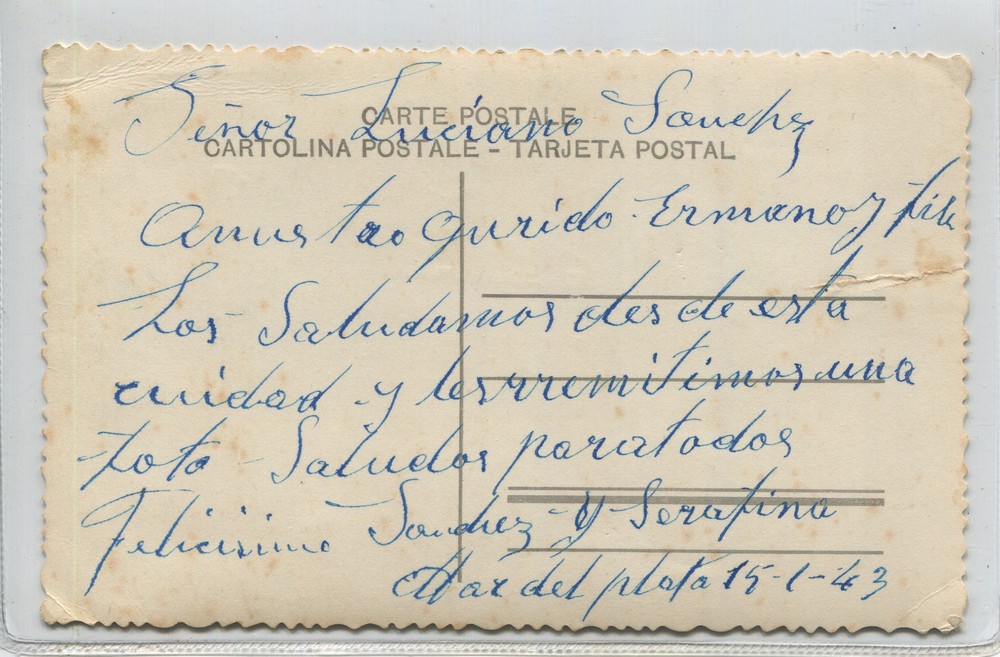 Señor Luciano Sanchez
CARTE POSTALE
CARTOLINA POSTALE - TARJETA POSTAL
Anustro Qurido Ermano y
Los Saludamos desde esta
cuidad y lesrremitimos una
foto Saludos paratodos
Felicisimo Sanchez y Serafina
Mar del plata 15-1-43